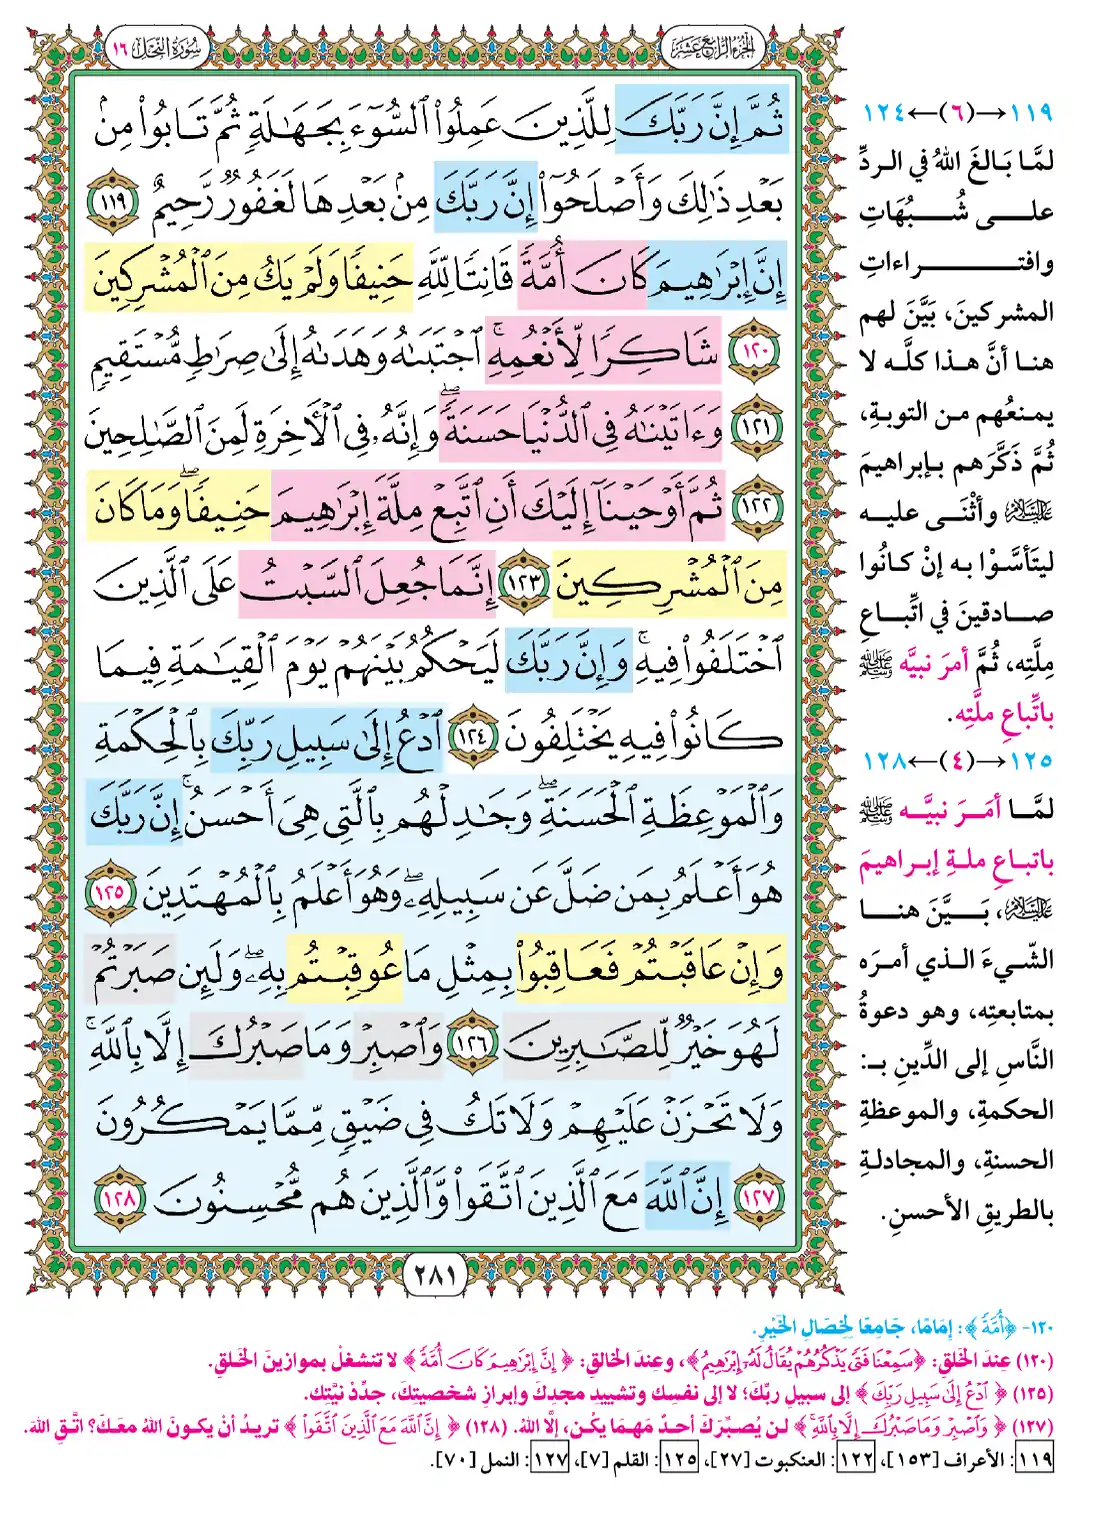 الجزء الرابع عشر
سورة النحل ١٦
ثُمَّ إِنَّ رَبَّكَ لِلَّذِينَ عَمِلُوا۟ ٱلسُّوٓءَ بِجَهَـٰلَةٍ ثُمَّ تَابُوا۟ مِنۢ
بَعْدِ ذَٰلِكَ وَأَصْلَحُوٓا۟ إِنَّ رَبَّكَ مِنۢ بَعْدِهَا لَغَفُورٌ رَّحِيمٌ ١١٩
إِنَّ إِبْرَٰهِيمَ كَانَ أُمَّةً قَانِتًا لِّلَّهِ حَنِيفًا وَلَمْ يَكُ مِنَ ٱلْمُشْرِكِينَ
١٢٠ شَاكِرًا لِّأَنْعُمِهِ ۚ ٱجْتَبَىٰهُ وَهَدَىٰهُ إِلَىٰ صِرَٰطٍ مُّسْتَقِيمٍ
١٢١ وَءَاتَيْنَـٰهُ فِى ٱلدُّنْيَا حَسَنَةً ۖ وَإِنَّهُۥ فِى ٱلْـَٔاخِرَةِ لَمِنَ ٱلصَّـٰلِحِينَ
١٢٢ ثُمَّ أَوْحَيْنَآ إِلَيْكَ أَنِ ٱتَّبِعْ مِلَّةَ إِبْرَٰهِيمَ حَنِيفًا ۖ وَمَا كَانَ
مِنَ ٱلْمُشْرِكِينَ ١٢٣ إِنَّمَا جُعِلَ ٱلسَّبْتُ عَلَى ٱلَّذِينَ
ٱخْتَلَفُوا۟ فِيهِ ۚ وَإِنَّ رَبَّكَ لَيَحْكُمُ بَيْنَهُمْ يَوْمَ ٱلْقِيَـٰمَةِ فِيمَا
كَانُوا۟ فِيهِ يَخْتَلِفُونَ ١٢٤ ٱدْعُ إِلَىٰ سَبِيلِ رَبِّكَ بِٱلْحِكْمَةِ
وَٱلْمَوْعِظَةِ ٱلْحَسَنَةِ ۖ وَجَـٰدِلْهُم بِٱلَّتِى هِىَ أَحْسَنُ ۚ إِنَّ رَبَّكَ
هُوَ أَعْلَمُ بِمَن ضَلَّ عَن سَبِيلِهِۦ ۖ وَهُوَ أَعْلَمُ بِٱلْمُهْتَدِينَ ١٢٥
وَإِنْ عَاقَبْتُمْ فَعَاقِبُوا۟ بِمِثْلِ مَا عُوقِبْتُم بِهِۦ ۖ وَلَئِن صَبَرْتُمْ
لَهُوَ خَيْرٌ لِّلصَّـٰبِرِينَ ١٢٦ وَٱصْبِرْ وَمَا صَبْرُكَ إِلَّا بِٱللَّهِ ۚ
وَلَا تَحْزَنْ عَلَيْهِمْ وَلَا تَكُ فِى ضَيْقٍ مِّمَّا يَمْكُرُونَ
١٢٧ إِنَّ ٱللَّهَ مَعَ ٱلَّذِينَ ٱتَّقَوا۟ وَّٱلَّذِينَ هُم مُّحْسِنُونَ ١٢٨
٢٨١
١١٩→(٦)←١٢٤
لمَّا بَالغَ اللهُ في الردِّ
على شُبُهَاتِ
وافتراءاتِ
المشركينَ، بَيَّنَ لهم
هنا أنَّ هذا كلَّه لا
يمنعُهم من التوبةِ،
ثُمَّ ذَكَّرَهم بإبراهيمَ
عليه السلام وأثْنَى عليه
ليتَأسَّوْا به إنْ كانُوا
صادقينَ في اتِّباعِ
مِلَّتِه، ثُمَّ أمرَ نبيَّه ﷺ
باتِّباعِ ملَّتِه.
١٢٥→(٤)←١٢٨
لمَّا أمَرَ نبيَّه ﷺ
باتباعِ ملةِ إبراهيمَ
عليه السلام، بَيَّنَ هنا
الشّيءَ الذي أمرَه
بمتابعتِه، وهو دعوةُ
النَّاسِ إلى الدِّينِ بـ:
الحكمةِ، والموعظةِ
الحسنةِ، والمجادلةِ
بالطريقِ الأحسنِ.
١٢٠- ﴿أُمَّةً﴾: إمَامًا، جَامِعًا لِخِصَالِ الخَيْرِ.
(١٢٠) عندَ الخَلقِ: ﴿سَمِعْنَا فَتًى يَذْكُرُهُمْ يُقَالُ لَهُۥٓ إِبْرَٰهِيمُ﴾، وعندَ الخالقِ: ﴿إِنَّ إِبْرَٰهِيمَ كَانَ أُمَّةً﴾ لا تنشغلْ بموازينَ الخَلقِ.
(١٢٥) ﴿ٱدْعُ إِلَىٰ سَبِيلِ رَبِّكَ﴾ إلى سبيلِ ربِّكَ؛ لا إلى نفسِكَ وتشييدِ مجدِكَ وإبرازِ شخصيتِكَ، جدِّدْ نيَّتِك.
(١٢٧) ﴿وَٱصْبِرْ وَمَا صَبْرُكَ إِلَّا بِٱللَّهِ ۚ﴾ لن يُصبِّرَكَ أحدٌ مَهمَا يكُن، إلَّا اللهُ. (١٢٨) ﴿إِنَّ ٱللَّهَ مَعَ ٱلَّذِينَ ٱتَّقَوا۟﴾ تريدُ أنْ يكونَ اللهُ معَكَ؟ اتَّقِ اللهَ.
١١٩: الأعراف [١٥٣]، ١٢٢: العنكبوت [٢٧]، ١٢٥: القلم [٧]، ١٢٧: النمل [٧٠].